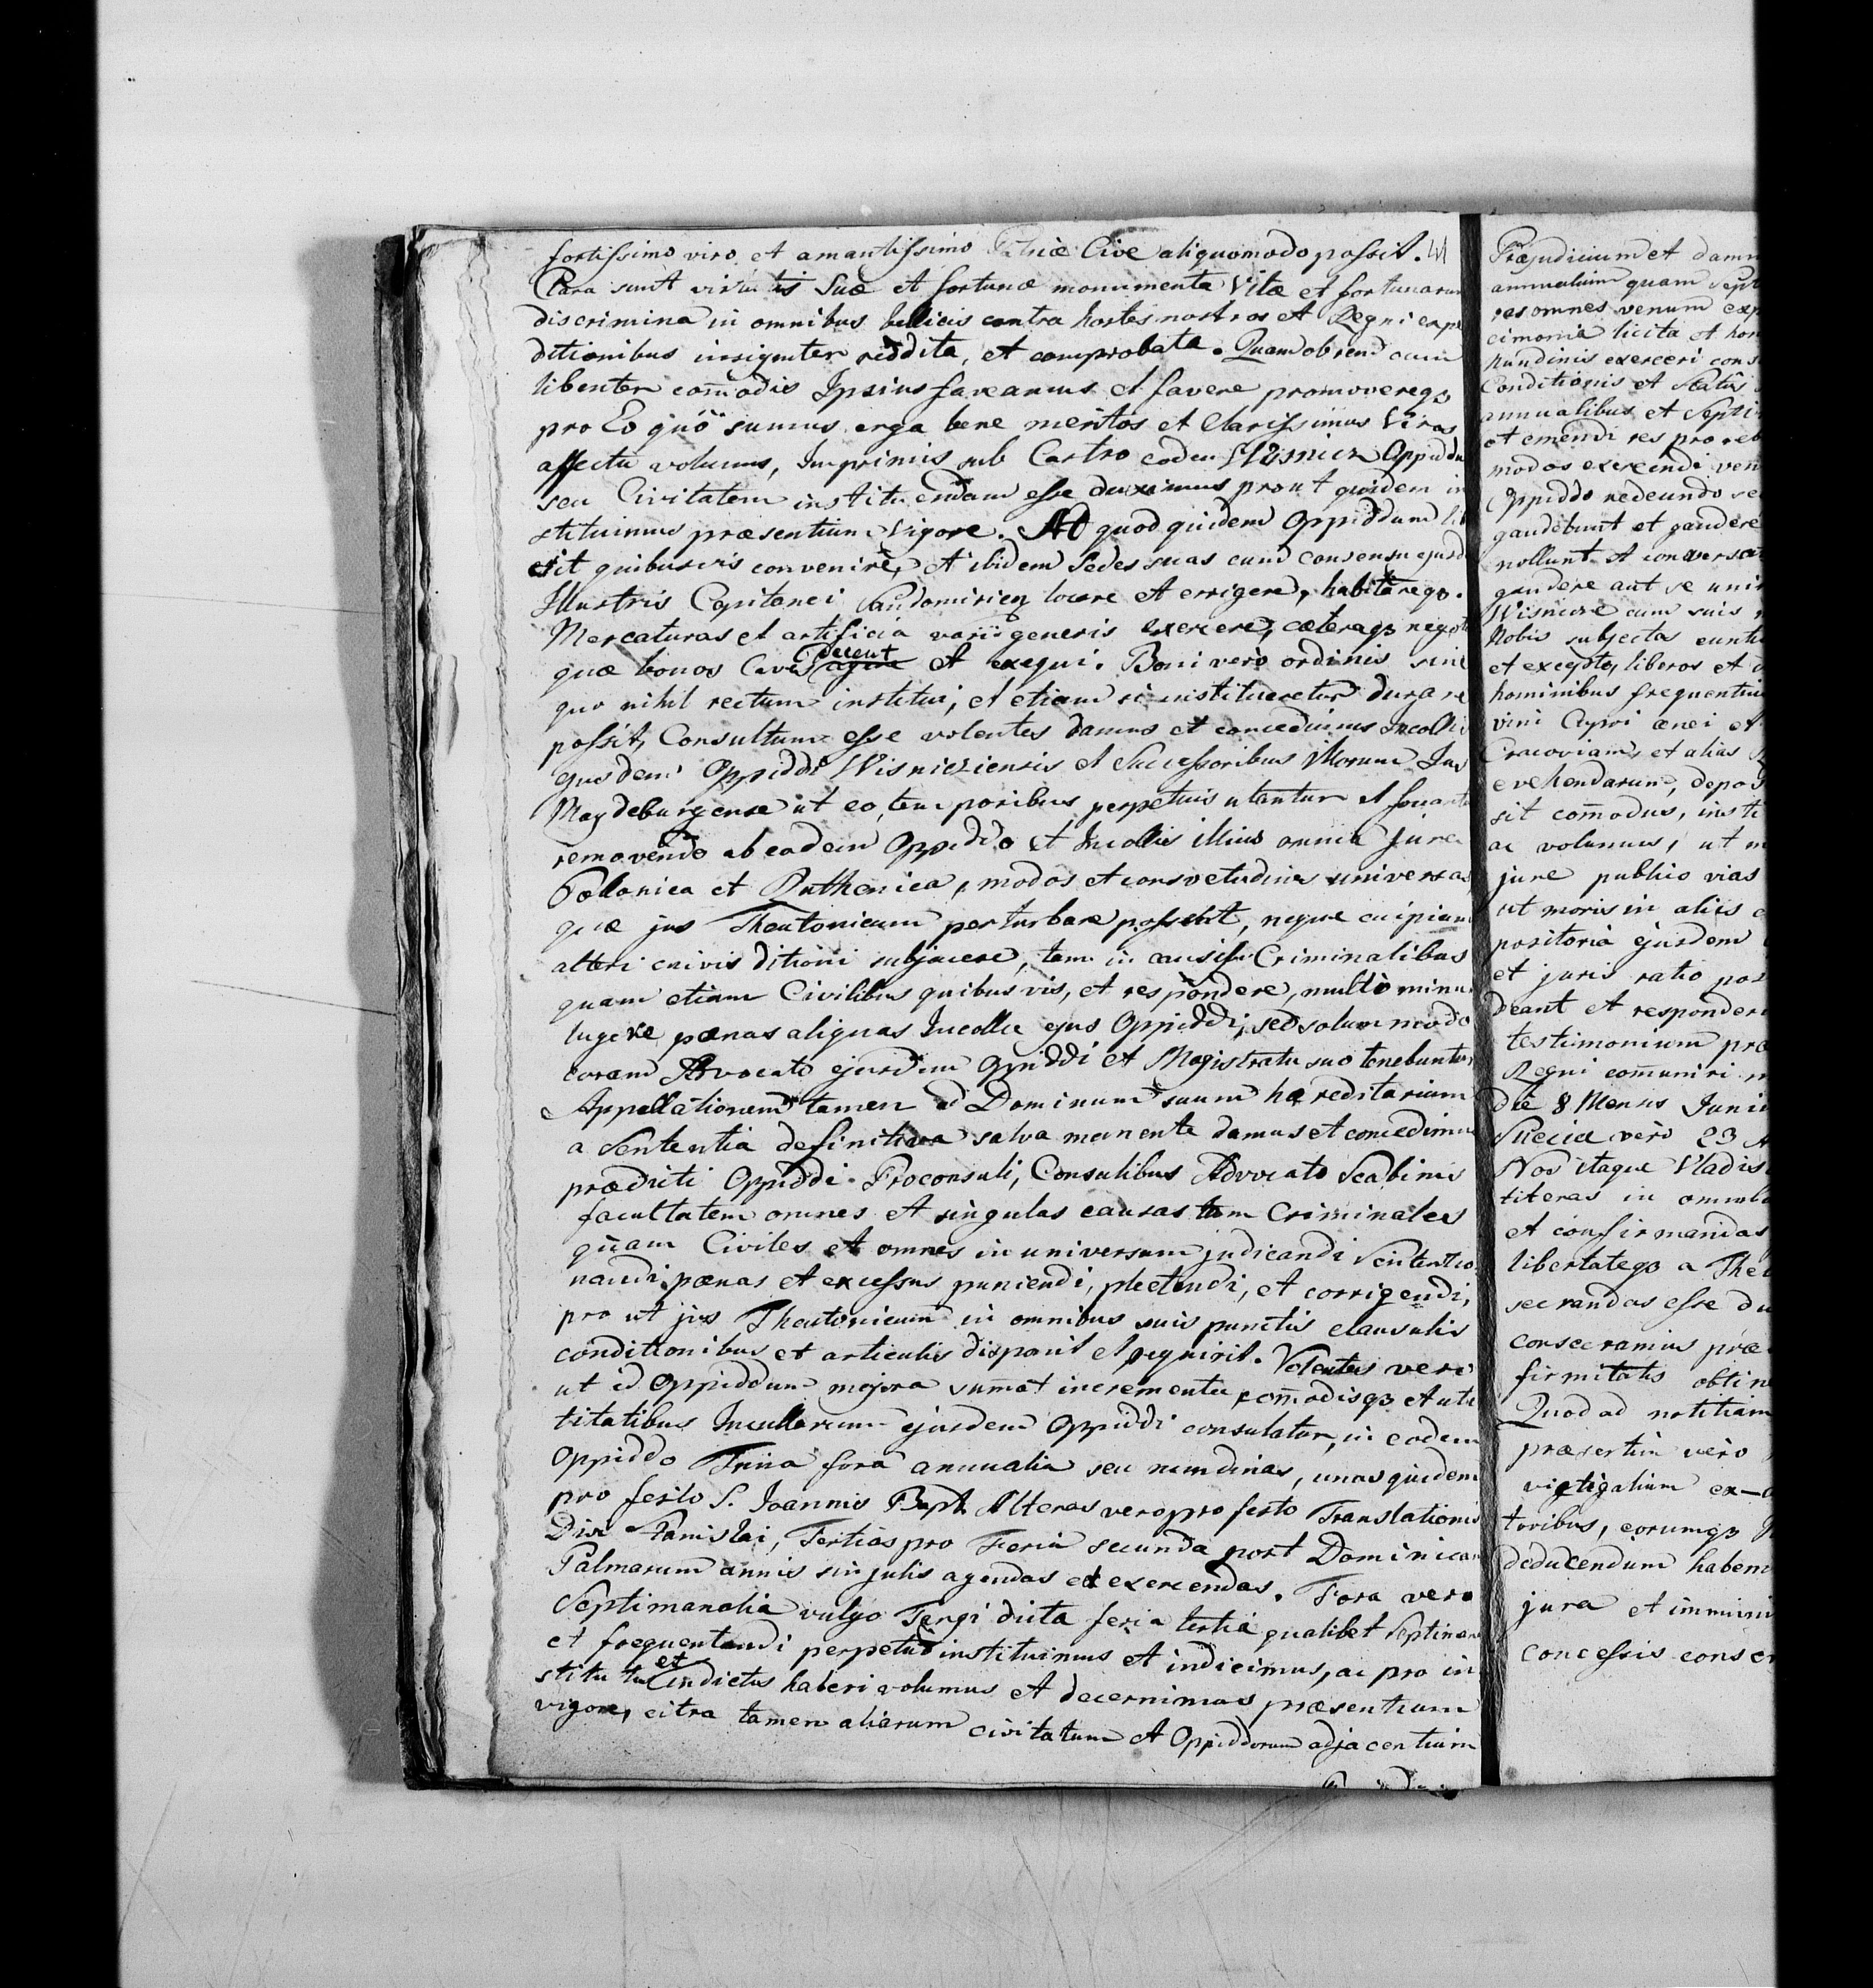 fortissimo viro et amantissimo Patriæ Cive aliquomodo possit. 41
Clara sunt virtutis Suæ et fortunæ monumenta Vitæ et fortunarum
discrimina in omnibus bellicis contra hostes nostros et Regni expe
ditionibus insigniter reddita, et comprobata. Quamobrem cum
libenter com̃odis Ipsius faveamus et favere promovereqȝ
pro Eo quo sumus erga bene meritos et Clarissimos Viros
affectu volumus, Imprimis sub Castro eodem Wisnicz Oppidu
seu Civitatem instituendam esse duximus prout quidem in
stituimus præsentium vigore. Ad quod quidem Oppiddum li
sit quibusvis convenire, et ibidem Sedes suas cum consensu ejusd
Illustris Capitanei Sandomirien locare et errigere, habitareqȝ.
Mercaturas et artificia varii generis exercere, cæteraqȝ negot
quæ bonos Cives decent et exequi. Boni vero ordinis sine
quo nihil rectum institui, et etiam si institueretur durare
possit, Consultum esse volentes damus et concedimus Incolis
ejusdem Oppiddi Wisniciensis et Successoribus Illorum Jus
Magdeburgense ut eo, temporibus perpetuis utantur et fruantu
removendo ab eodem Oppiddo et Incolis illius omnia Jura
Pollonica et Ruthenica, modos et consvetudines universas
quæ jus Theutonicum perturbare possent, neque cuipiam
alteri cuivis ditioni subjacere, tam in causis Criminalibus
quam etiam Civilibus quibusvis, et respondere, multò minus
lugere pænas aliquas Incollæ ejus Oppiddi, sed solummodo
coram Advocato ejusdem Oppiddi et Magistratu suo tenebuntur
Appellationem tamen ad Dominum suum hæreditarium
a Sententia definitiva salva manente damus et concedimus
prædicti Oppiddi Proconsuli, Consulibus Advocato Scabinis
facultatem omnes et singulas causas tam Criminales
quam Civiles et omnes in universum judicandi Sententio
nandi pænas et excessus puniendi, plectendi, et corrigendi,
pro ut jus Theutonicum in omnibus suis punctis clausulis
conditionibus et articulis disponit et requirit. Volentes vero
ut id Oppiddum majora sum̃at incrementa, com̃odisqȝ et uti
litatibus Incollarum ejusdem Oppiddi consulatur, in eodem
Oppiddo Trina fora annualia seu nundinas, unas quidem
pro festo S. Joannis Bapt. Alteras vero pro festo Translationis
Divi Stanislai, Tertias pro Feria secunda post Dominicam
Palmarum annis singulis agendas et exercendas. Fora vero
Septimanalia vulgo Targi dicta feria tertia qualibet Septiman
et frequentandi perpetuò instituimus et indicimus, ac pro in
stitutis et indictis haberi volumus et decernimus præsentium
vigore, citra tamen aliarum civitatum et Oppiddorum adjacentium
Præjudicium et damn
annualium quam Sept
res omnes venum exp
cimonia licita et hon
nundinis exerceri cons
Conditionis et Statûs
annualibus et Septi
et emendi res pro reb
modos exercendi ven
Oppiddo redeundo se
gaudebunt et gaudere
nollunt et conversa
gaudere aut se unir
Wisnicze cum suis
Nobis subjectas eunti
et excepto, liberos et
hominibus frequentiu
vini Cypri ænei et
Cracoviam, et alias
evehendarum, depos
sit com̃odus, insti
ac volumus, ut m
jure publico vias
ut moris in aliis
positoria ejusdem
et juris ratio pos
deant et responder
testimonium præ
Regni com̃uniri
die 8 Mensis Junii
Sueciæ verò 23
Nos itaque Vladis
literas in omnib
et confirmandas
libertateqȝ a The
secrandas esse du
consecramus præ
firmitatis obtin
Quod ad notitiam
præsertim vero
vigtigalium ex-a
toribus, eorumqȝ
deducendum habem
jura et immuni
concessis conser